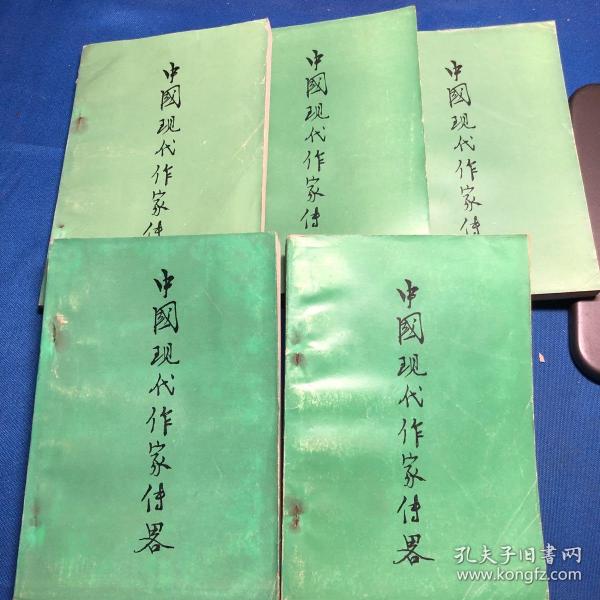 中國现代作家传
中國现代作家传
中國现代作家传
中國现代作家传畧
中國现代作家传畧
孔夫子旧书网
www.kongfz.com